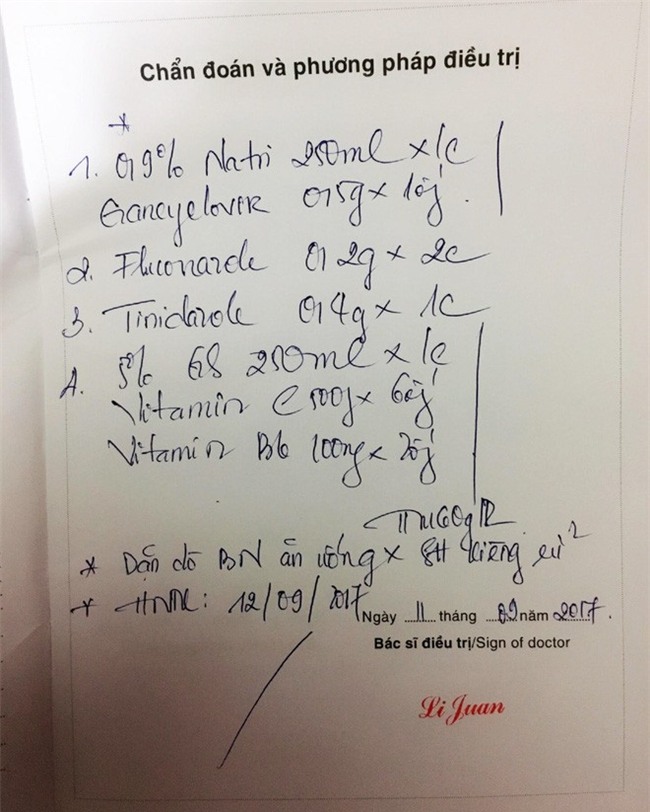 Chẩn đoán và phương pháp điều trị
*
1. 0,9% Natri 250ml x 1c
Gancyclover 0,5g x 1ốj.
2. Fluconazole 0,2g x 2c
3. Tinidazole 0,4g x 1c
4. 5% GS 250ml x 1c
Vitamin C 500g x 6ốj
Vitamin B6 100mg x 2ốj
* Dặn dò BN ăn uống x SH kiêng cử
* HNTK: 12/09/2017
Ngày 11 tháng 09 năm 2017.
Bác sĩ điều trị/Sign of doctor
Li Juan